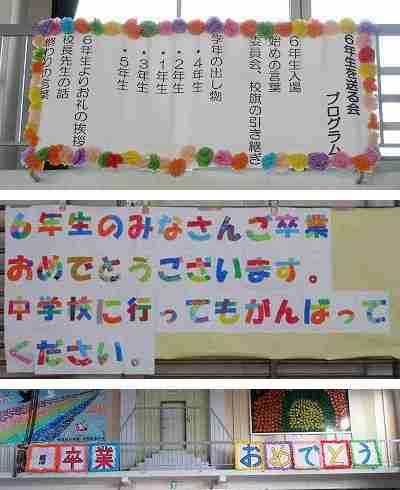 6年生を送る会
プログラム
6年生入場
始めの言葉
委員会、校旗の引き継ぎ
学年の出し物
・4年生
・2年生
・1年生
・3年生
・5年生
6年生よりお礼の挨拶
校長先生の話
終わりの言葉
6年生のみなさんご卒業
おめでとうございます。
中学校に行ってもがんばって
ください。
卒業
おめでとう